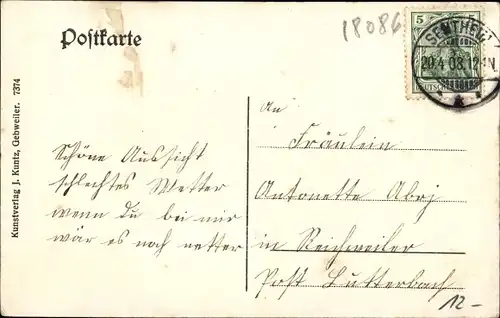 Postkarte
18086
5
SENTHEIM
20.4.08.12-1N.
DEUTSCHES
Kunstverlag J. Kuntz, Gebweiler. 7374
Schöne Aussicht
schlechtes Wetter
wenn Du bei mir
wär es noch netter
An
Fräulein
Antonette
in Reichweiler
Post Lutterbach
12-